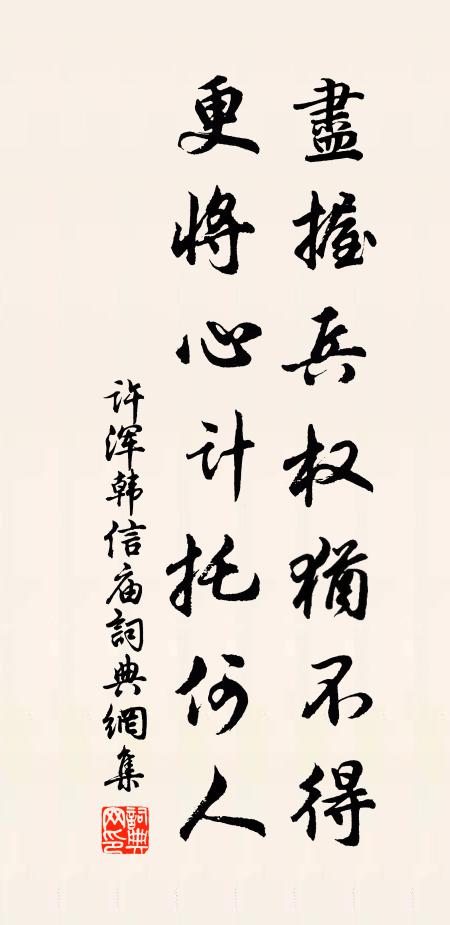 盡握兵权猶不得
更将心计托何人
许浑韩信庙詞典網集
詞典
网印